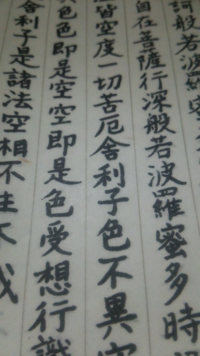 訶般若波羅
自在菩薩行深般若波羅蜜多時
皆空度一切苦厄舍利子色不異空
色色即是空空即是色受想行識
舍利子是諸法空相不生不滅